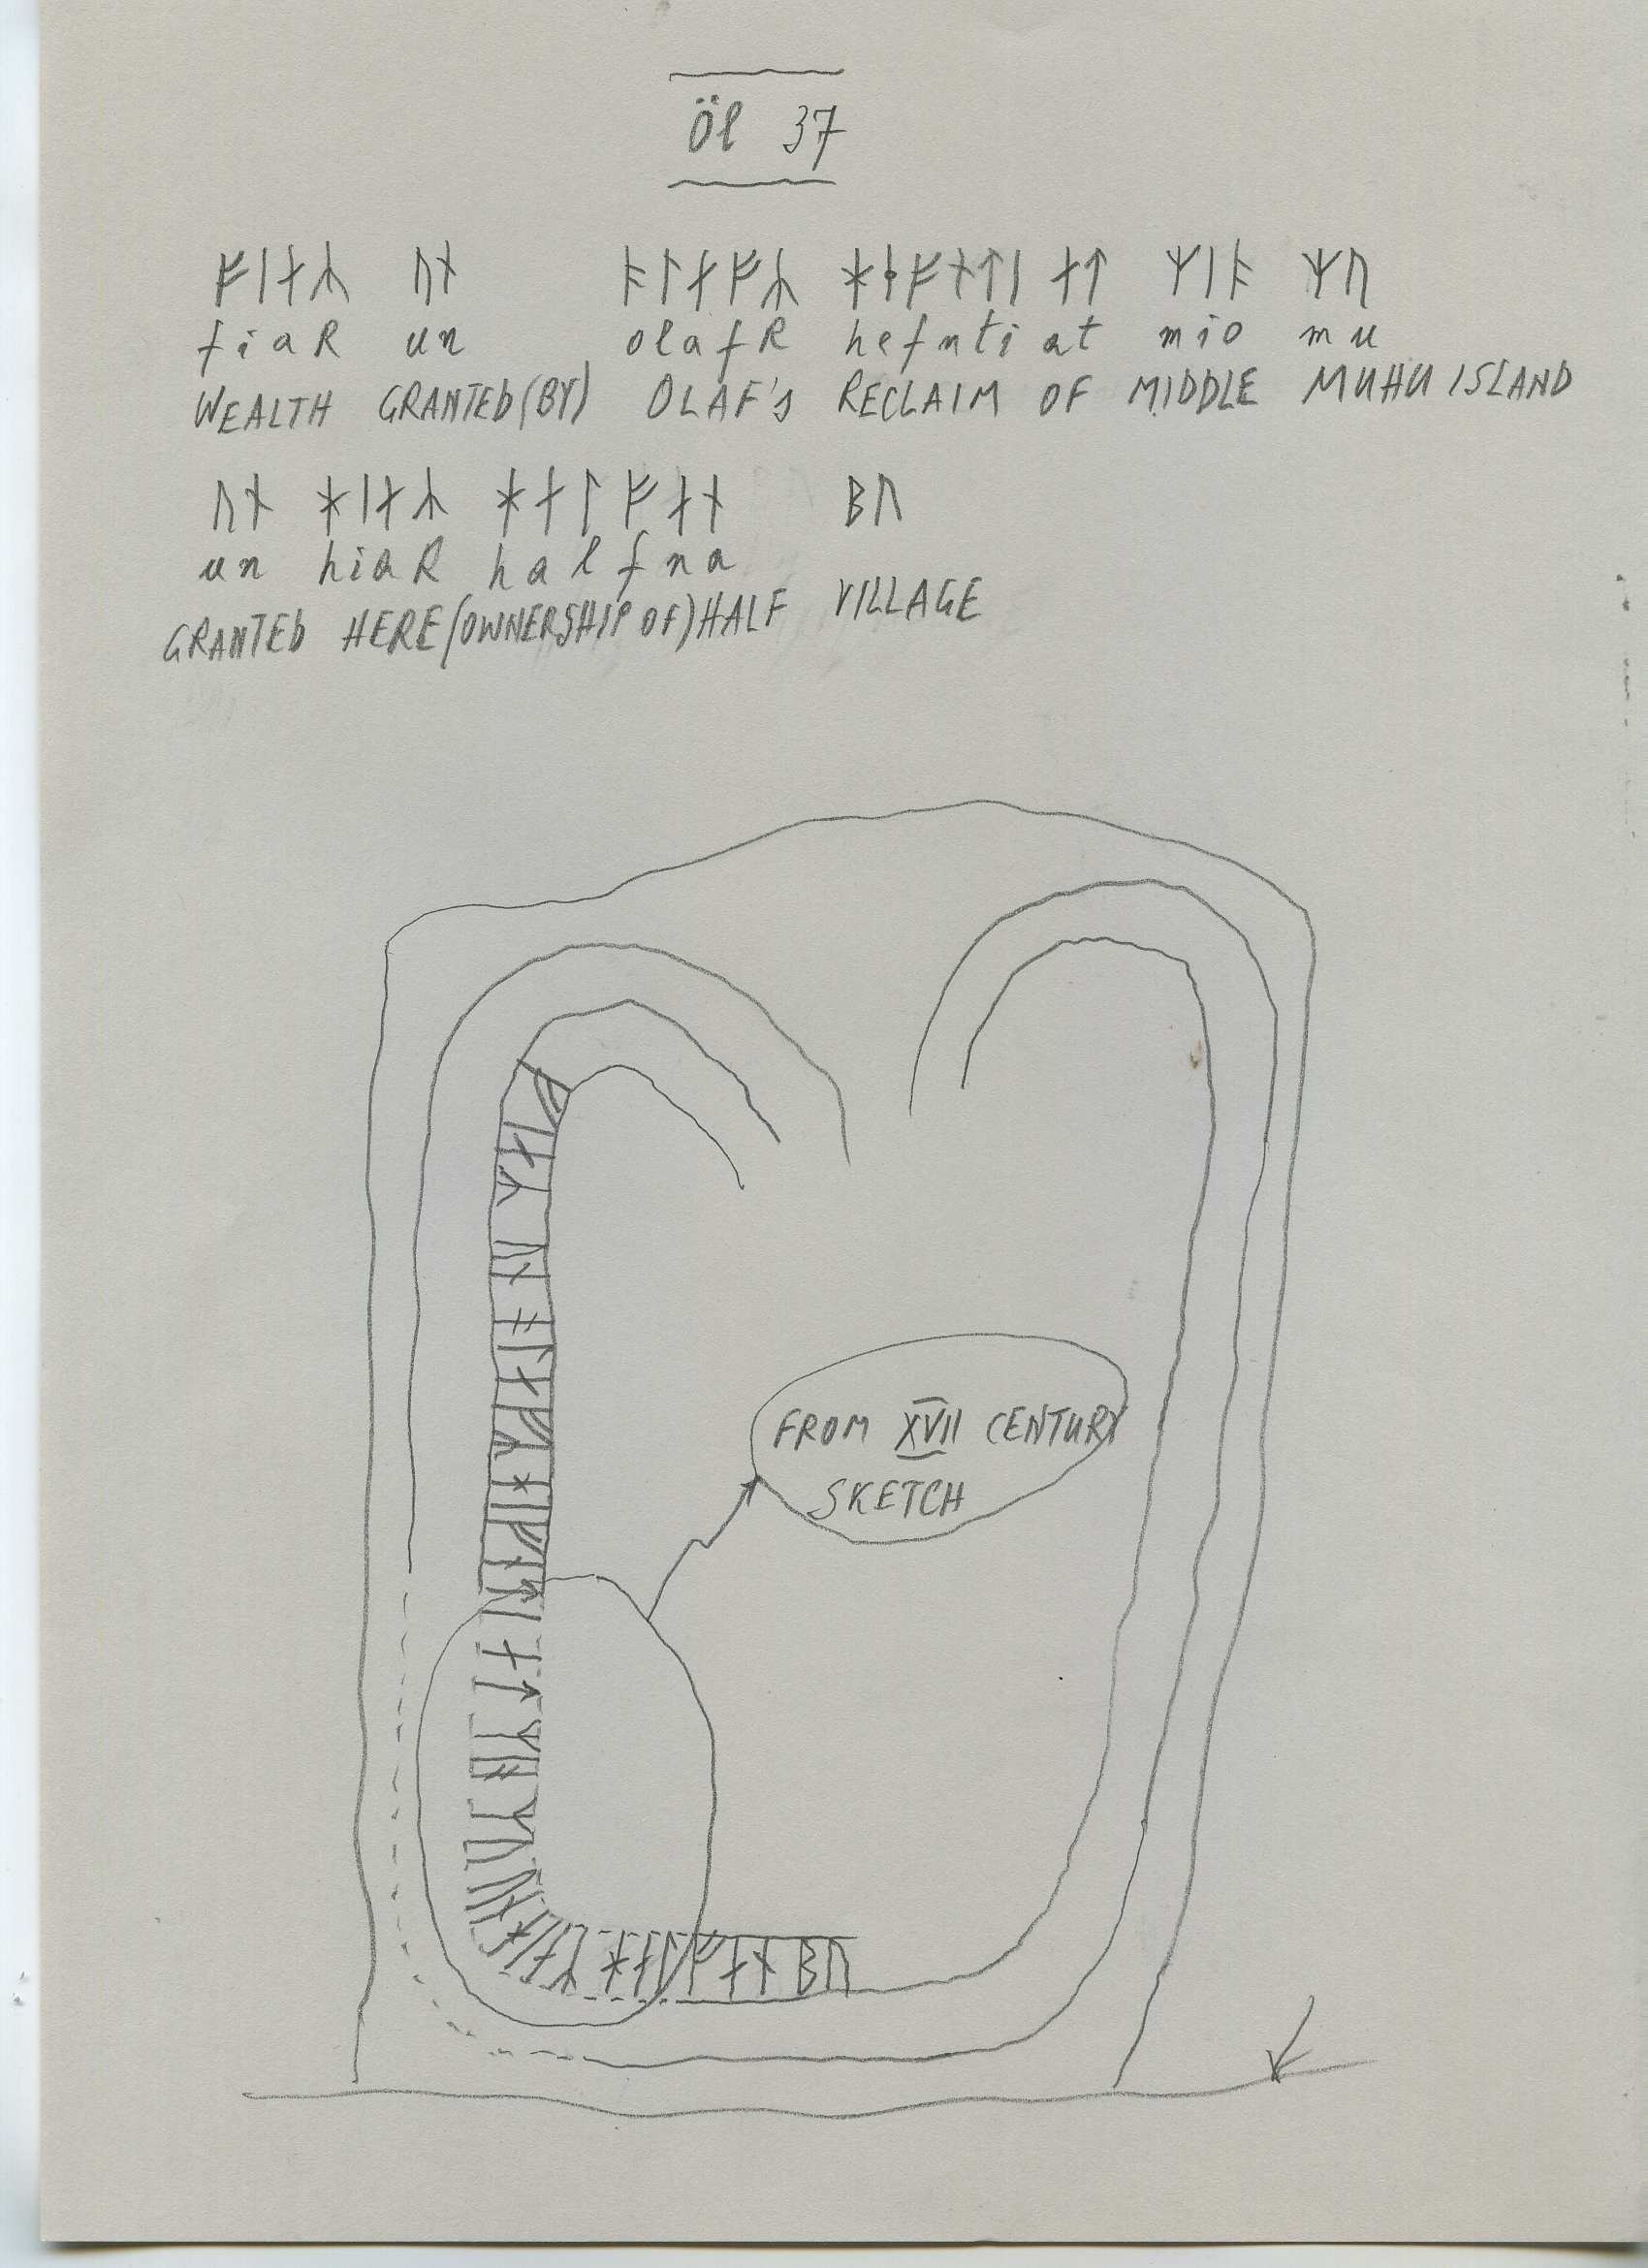 Öl 37
ᚠᛁᛅᛦ ᚢᚾ ᚬᛚᛅᚠᛦ ᚼᛂᚠᚾᛏᛁ ᛅᛏ ᛘᛁᚬ ᛘᚢ
fiaR un olafR hefnti at mio mu
WEALTH GRANTED(BY) OLAF'S RECLAIM OF MIDDLE MUHU ISLAND
ᚢᚾ ᚼᛁᛅᛦ ᚼᛅᛚᚠᛅᚾ ᛒᚢ
un hiaR halfna
GRANTED HERE(OWNERSHIP OF)HALF VILLAGE
ᚠᛁᛅᛦ ᚢᚾ ᚬᛚᛅᚠᛦ ᚼᛂᚠᚾᛏᛁ ᛅᛏ ᛘᛁᚬ ᛘᚢ ᚢᚾ ᚼᛁᛅᛦ ᚼᛅᛚᚠᛅᚾ ᛒᚢ
FROM XVII CENTURY
SKETCH